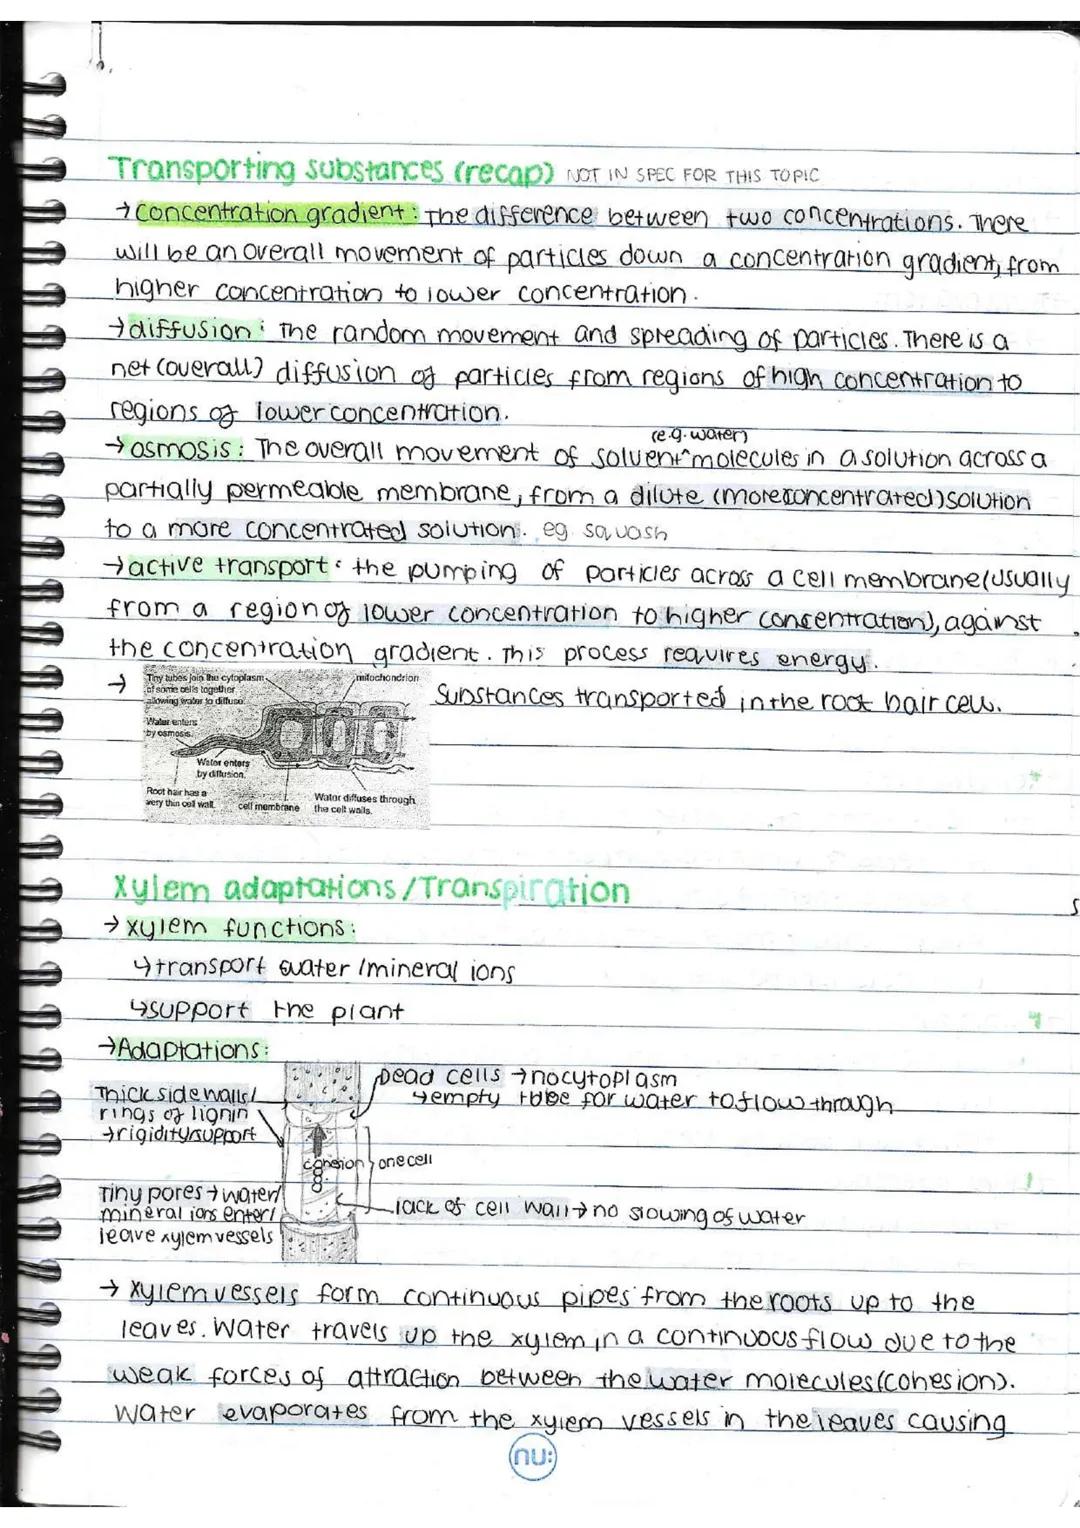 Transporting substances (recap) NOT IN SPEC FOR THIS TOPIC
→ concentration gradient: The difference between two concentrations. There
will be an overall movement of particles down a concentration gradient, from
higher concentration to lower concentration.
→ diffusion: The random movement and spreading of particles. There is a
net (overall) diffusion of particles from regions of high concentration to
regions of lower concentration.
(e.g. water)
→ osmosis: The overall movement of solvent^molecules in a solution across a
partially permeable membrane, from a dilute (more concentrated) solution
to a more concentrated solution. eg. squash
→ active transport: the pumping of particles across a cell membrane (usually
from a region of lower concentration to higher concentration), against
the concentration gradient. This process requires energy.
→
Tiny tubes join the cytoplasm
of some cells together
allowing water to diffuse.
mitochondrion
Water enters
by osmosis.
Water enters
by diffusion.
Root hair has a
very thin cell wall.
cell membrane
Water diffuses through
the cell walls.
Substances transported in the root hair cell.
Xylem adaptations/Transpiration
→ xylem functions:
↳ transport water/mineral ions
↳ support the plant
→ Adaptations:
Thick side walls/
rings of lignin
→ rigidity/support
Dead cells → no cytoplasm
↳ empty tube for water to flow through
cohesion
one cell
Tiny pores → water/
mineral ions enter/
leave xylem vessels
lack of cell wall → no slowing of water
→ Xylem vessels form continuous pipes from the roots up to the
leaves. Water travels up the xylem in a continuous flow due to the
weak forces of attraction between the water molecules (cohesion).
Water evaporates from the xylem vessels in the leaves causing
nu: